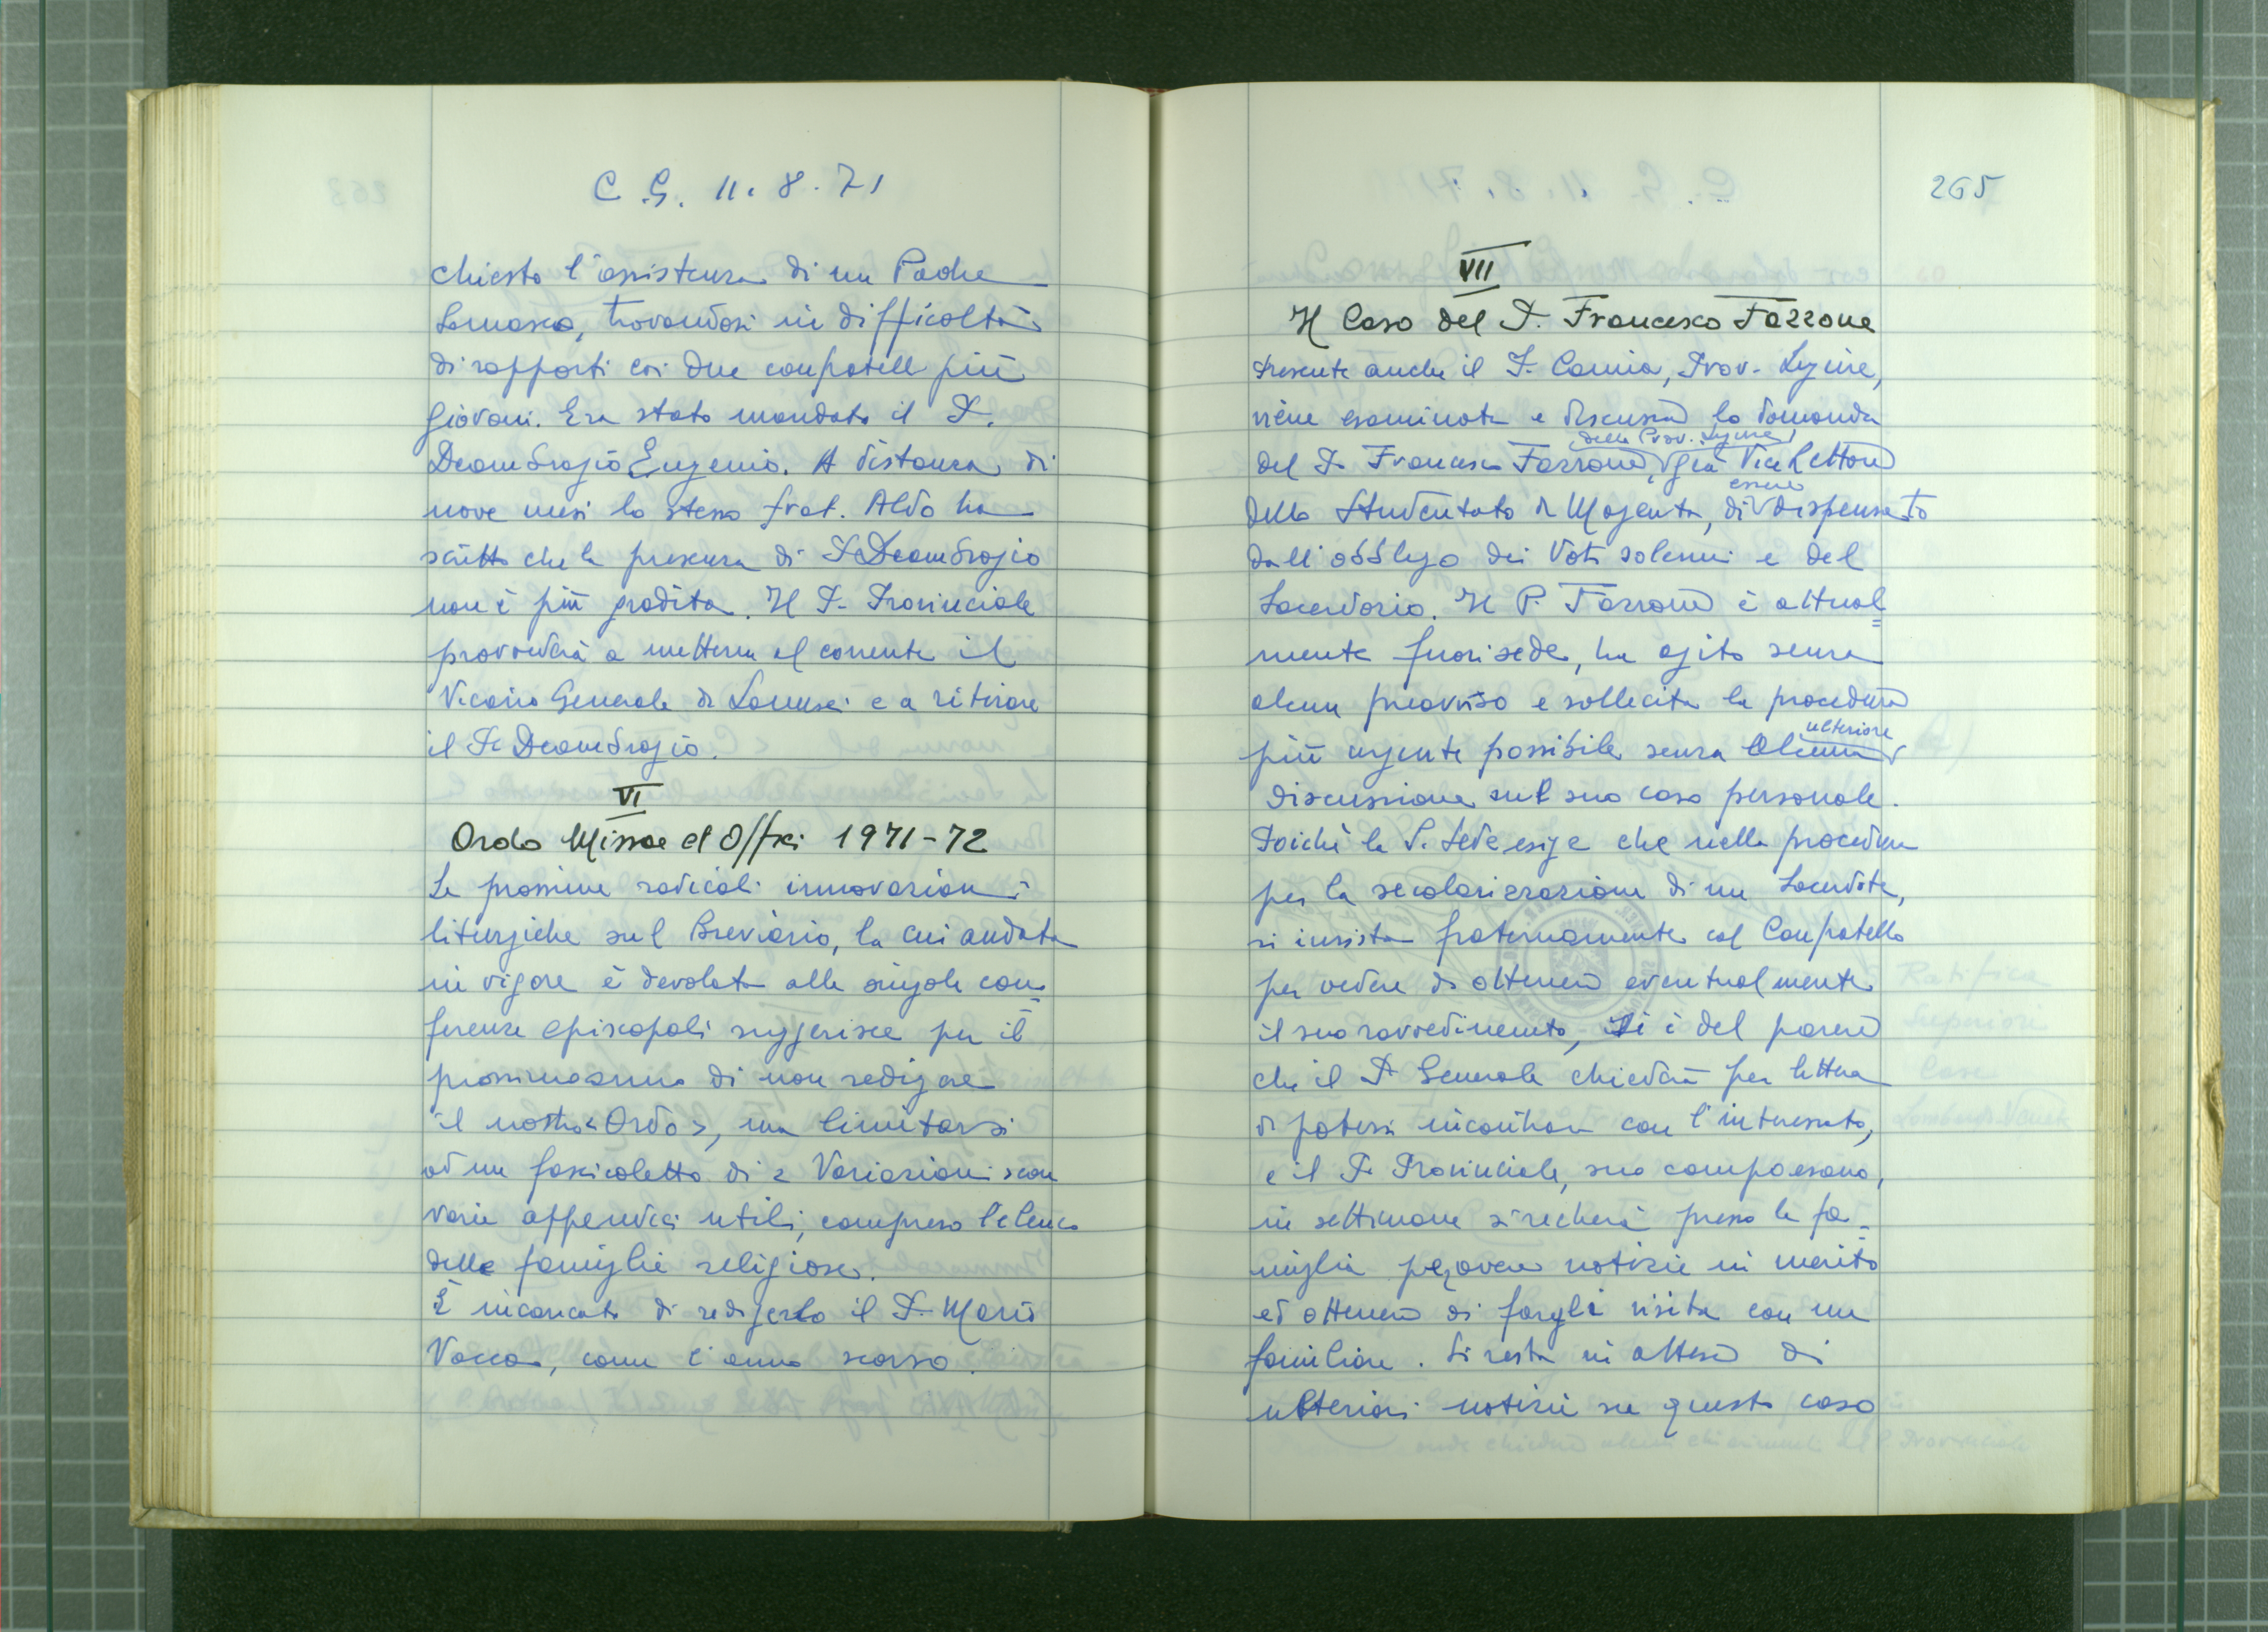 C.G. 11.8.71
chiesto l'assistenza di un Padre
Somasco, trovandosi in difficoltà
di rapporti coi due confratelli più
giovani. Era stato mandato il P.
Deambrogio Eugenio. A distanza di
nove mesi lo stesso frat. Aldo ha
scritto che la presenza di P. Deambrogio
non è più gradita. Il P. Provinciale
provvederà a mettere al corrente il
Vicario Generale di Lanusei e a ritirare
il P. Deambrogio.
VI
Ordo Missae et Offici 1971-72
Le prossime radicali innovazioni
liturgiche sul Breviario, la cui andata
in vigore è devoluta alle singole con=
ferenze episcopali suggerisce per il
prossimo anno di non redigere
il nostro "Ordo", ma limitarsi
ad un fascicoletto di "Variazioni" con
varie appendici utili, compreso l'elenco
delle famiglie religiose.
È incaricato di redigerlo il P. Mario
Vacca, come l'anno scorso.
265
VII
Il Caso del P. Francesco Fazzone
Presente anche il P. Camia, Prov. Ligure,
viene esaminata e discussa la domanda
della Prov. Ligure,
del P. Francesco Fazzone, già Vice Rettore
essere
dello Studentato di Magenta, di dispensato
dall'obbligo dei Voti solenni e del
Sacerdozio. Il P. Fazzone è attual=
mente fuori sede, ha agito senza
alcun preavviso e sollecita la procedura
ulteriore
più urgente possibile senza alcuna
discussione sul suo caso personale.
Poichè la S. Sede esige che nella procedura
per la secolarizzazione di un Sacerdote,
si insista fraternamente col Confratello
per vedere di ottenere eventualmente
il suo ravvedimento, si è del parere
che il P. Generale chiederà per lettera
di potersi incontrare con l'interessato,
e il P. Provinciale, suo compaesano,
in settimana si recherà presso la fa=
miglia per avere notizie in merito
ed ottenere di fargli visita con un
familiare. Si resta in attesa di
ulteriori notizie su questo caso